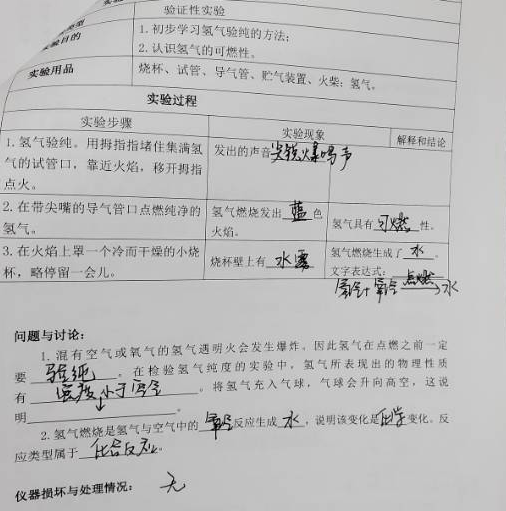 验证性实验
实验目的
1.初步学习氢气验纯的方法;
2.认识氢气的可燃性。
实验用品
烧杯、试管、导气管、贮气装置、火柴;氢气。
实验过程
实验步骤
实验现象
解释和结论
1.氢气验纯。用拇指指堵住集满氢
气的试管口,靠近火焰,移开拇指
点火。
发出的声音尖锐爆鸣声
2.在带尖嘴的导气管口点燃纯净的
氢气。
氢气燃烧发出 蓝 色
火焰。
氢气具有 可燃 性。
3.在火焰上罩一个冷而干燥的小烧
杯,略停留一会儿。
烧杯壁上有 水雾
氢气燃烧生成了 水 。
文字表达式:
点燃 水
问题与讨论:
1.混有空气或氧气的氢气遇明火会发生爆炸。因此氢气在点燃之前一定
要 验纯 。在检验氢气纯度的实验中,氢气所表现出的物理性质
有 密度小于空气 。将氢气充入气球,气球会升向高空,这说
明 。
2.氢气燃烧是氢气与空气中的 氧气 反应生成 水 ,说明该变化是 化学 变化。反
应类型属于 化合反应 。
仪器损坏与处理情况: 无